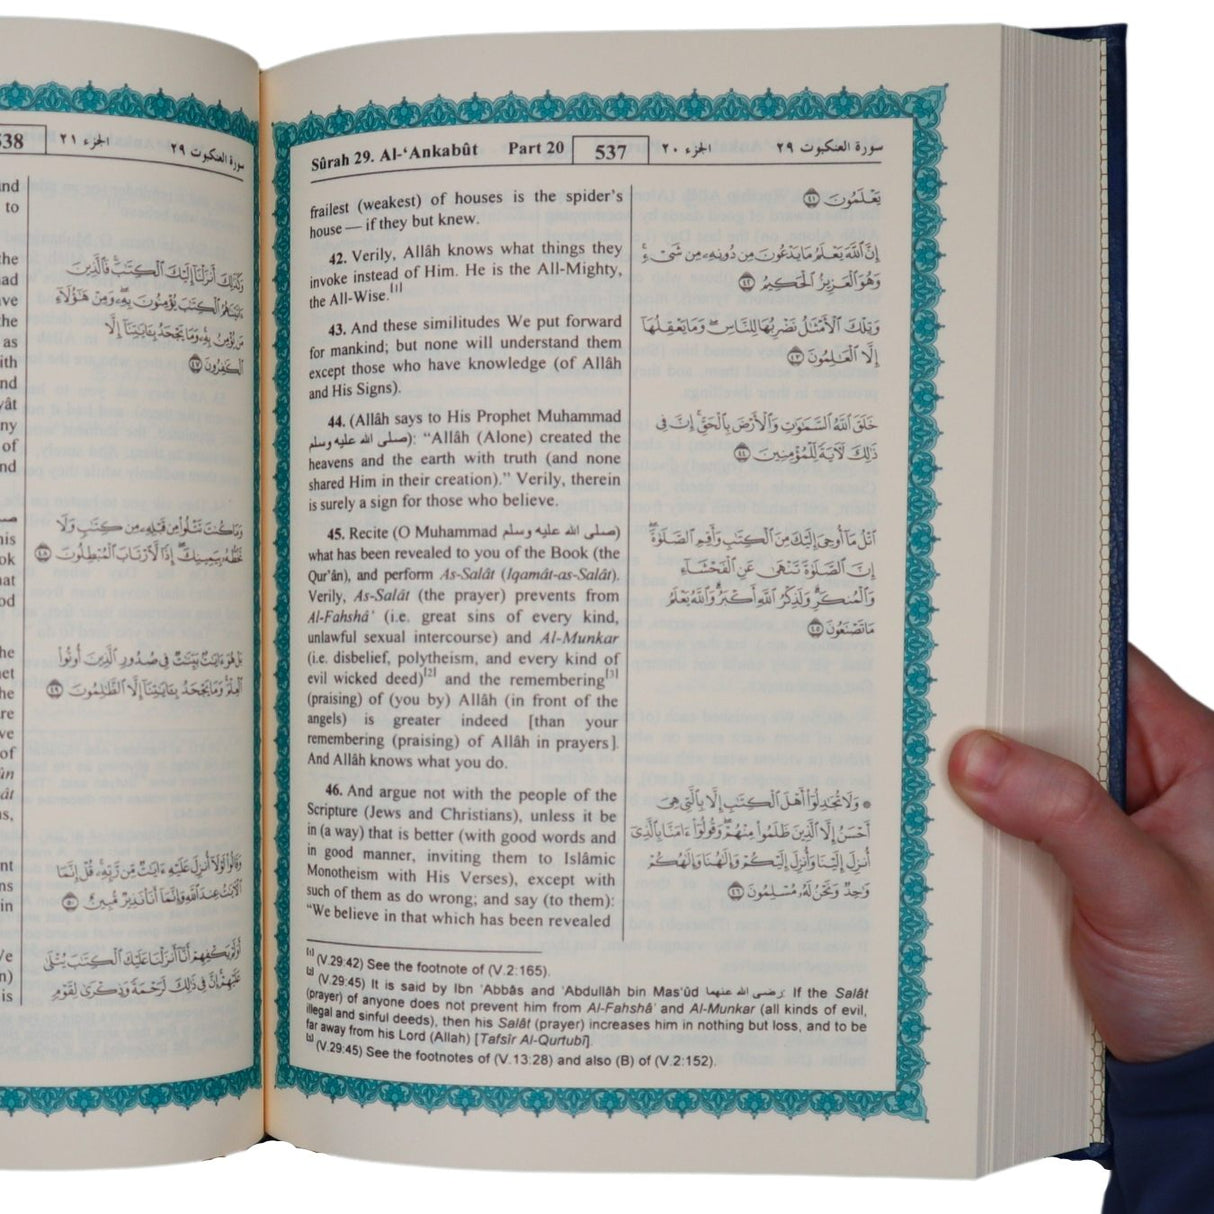 Sûrah 29. Al-‘Ankabût Part 20 537 الجزء ٢٠ سورة العنكبوت ٢٩
frailest (weakest) of houses is the spider's
house — if they but knew.
42. Verily, Allâh knows what things they
invoke instead of Him. He is the All-Mighty,
the All-Wise.[1]
43. And these similitudes We put forward
for mankind; but none will understand them
except those who have knowledge (of Allâh
and His Signs).
44. (Allâh says to His Prophet Muhammad
صلى الله عليه وسلم): “Allâh (Alone) created the
heavens and the earth with truth (and none
shared Him in their creation).” Verily, therein
is surely a sign for those who believe.
45. Recite (O Muhammad صلى الله عليه وسلم)
what has been revealed to you of the Book (the
Qur'ân), and perform As-Salât (Iqamât-as-Salât).
Verily, As-Salât (the prayer) prevents from
Al-Fahshâ' (i.e. great sins of every kind,
unlawful sexual intercourse) and Al-Munkar
(i.e. disbelief, polytheism, and every kind of
evil wicked deed)[2] and the remembering[3]
(praising) of (you by) Allâh (in front of the
angels) is greater indeed [than your
remembering (praising) of Allâh in prayers].
And Allâh knows what you do.
46. And argue not with the people of the
Scripture (Jews and Christians), unless it be
in (a way) that is better (with good words and
in good manner, inviting them to Islâmic
Monotheism with His Verses), except with
such of them as do wrong; and say (to them):
“We believe in that which has been revealed
يَعْلَمُونَ ٤١
إِنَّ ٱللَّهَ يَعْلَمُ مَا يَدْعُونَ مِن دُونِهِۦ مِن شَىْءٍ ۚ
وَهُوَ ٱلْعَزِيزُ ٱلْحَكِيمُ ٤٢
وَتِلْكَ ٱلْأَمْثَٰلُ نَضْرِبُهَا لِلنَّاسِ ۖ وَمَا يَعْقِلُهَآ
إِلَّا ٱلْعَٰلِمُونَ ٤٣
خَلَقَ ٱللَّهُ ٱلسَّمَٰوَٰتِ وَٱلْأَرْضَ بِٱلْحَقِّ ۚ إِنَّ فِى
ذَٰلِكَ لَءَايَةً لِّلْمُؤْمِنِينَ ٤٤
ٱتْلُ مَآ أُوحِىَ إِلَيْكَ مِنَ ٱلْكِتَٰبِ وَأَقِمِ ٱلصَّلَوٰةَ ۖ
إِنَّ ٱلصَّلَوٰةَ تَنْهَىٰ عَنِ ٱلْفَحْشَآءِ
وَٱلْمُنكَرِ ۗ وَلَذِكْرُ ٱللَّهِ أَكْبَرُ ۗ وَٱللَّهُ يَعْلَمُ
مَا تَصْنَعُونَ ٤٥
۞ وَلَا تُجَٰدِلُوٓا۟ أَهْلَ ٱلْكِتَٰبِ إِلَّا بِٱلَّتِى هِىَ
أَحْسَنُ إِلَّا ٱلَّذِينَ ظَلَمُوا۟ مِنْهُمْ ۖ وَقُولُوٓا۟ ءَامَنَّا بِٱلَّذِىٓ
أُنزِلَ إِلَيْنَا وَأُنزِلَ إِلَيْكُمْ وَإِلَٰهُنَا وَإِلَٰهُكُمْ
وَٰحِدٌ وَنَحْنُ لَهُۥ مُسْلِمُونَ ٤٦
[1] (V.29:42) See the footnote of (V.2:165).
[2] (V.29:45) It is said by Ibn ‘Abbâs and ‘Abdullâh bin Mas'ûd رضى الله عنهما: If the Salât
(prayer) of anyone does not prevent him from Al-Fahshâ' and Al-Munkar (all kinds of evil,
illegal and sinful deeds), then his Salât (prayer) increases him in nothing but loss, and to be
far away from his Lord (Allah) [Tafsîr Al-Qurtubî].
[3] (V.29:45) See the footnotes of (V.13:28) and also (B) of (V.2:152).
538 الجزء ٢١ سورة العنكبوت ٢٩
وَكَذَٰلِكَ أَنزَلْنَآ إِلَيْكَ ٱلْكِتَٰبَ ۚ فَٱلَّذِينَ
ءَاتَيْنَٰهُمُ ٱلْكِتَٰبَ يُؤْمِنُونَ بِهِۦ ۖ وَمِنْ هَٰٓؤُلَآءِ
مَن يُؤْمِنُ بِهِۦ ۚ وَمَا يَجْحَدُ بِـَٔايَٰتِنَآ إِلَّا
ٱلْكَٰفِرُونَ ٤٧
وَمَا كُنتَ تَتْلُوا۟ مِن قَبْلِهِۦ مِن كِتَٰبٍ وَلَا
تَخُطُّهُۥ بِيَمِينِكَ ۖ إِذًا لَّٱرْتَابَ ٱلْمُبْطِلُونَ ٤٨
بَلْ هُوَ ءَايَٰتٌۢ بَيِّنَٰتٌ فِى صُدُورِ ٱلَّذِينَ أُوتُوا۟
ٱلْعِلْمَ ۚ وَمَا يَجْحَدُ بِـَٔايَٰتِنَآ إِلَّا ٱلظَّٰلِمُونَ ٤٩
وَقَالُوا۟ لَوْلَآ أُنزِلَ عَلَيْهِ ءَايَٰتٌ مِّن رَّبِّهِۦ ۖ قُلْ إِنَّمَا
ٱلْءَايَٰتُ عِندَ ٱللَّهِ وَإِنَّمَآ أَنَا۠ نَذِيرٌ مُّبِينٌ ٥٠
أَوَلَمْ يَكْفِهِمْ أَنَّآ أَنزَلْنَا عَلَيْكَ ٱلْكِتَٰبَ يُتْلَىٰ
عَلَيْهِمْ ۚ إِنَّ فِى ذَٰلِكَ لَرَحْمَةً وَذِكْرَىٰ لِقَوْمٍ